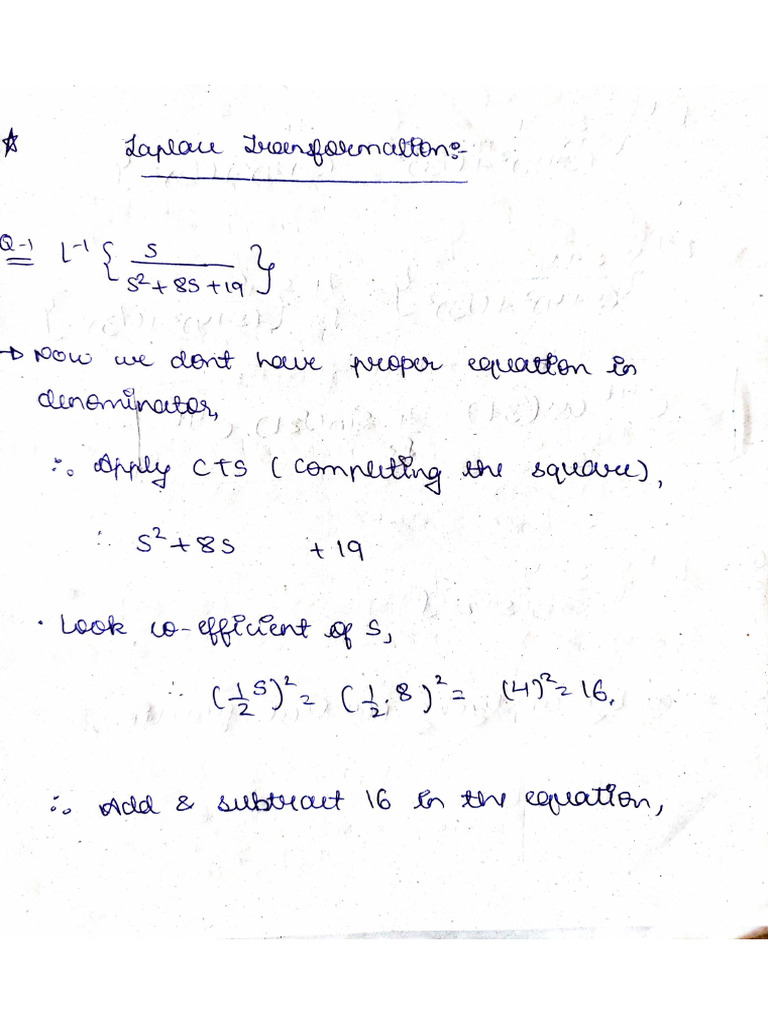 ☆ Laplace Transformation:-
Q-1 L⁻¹ { s / s²+8s+19 }
→ Now we dont have proper equation in
denominator,
∴ Apply CTS (completing the square),
∴ s²+8s +19
· Look co-efficient of s,
∴ (1/2 s)² = (1/2 . 8)² = (4)² = 16.
∴ Add & subtract 16 in the equation,